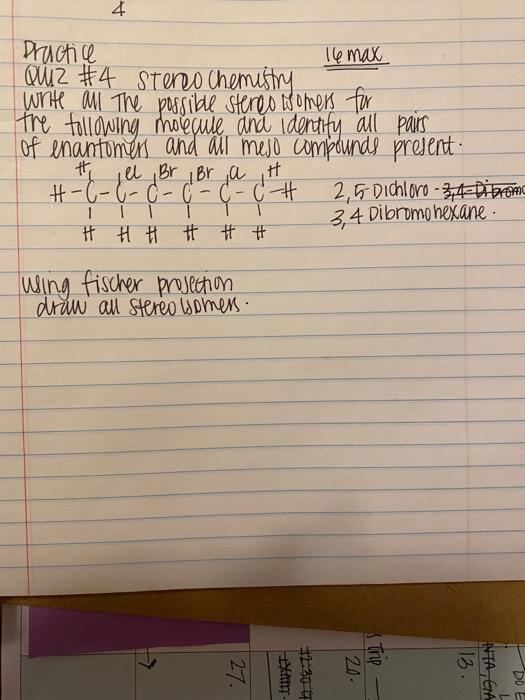 4
Practice 16 max
Quiz #4 Stereochemistry
write all The possible stereoisomers for
the following molecule and identify all pairs
of enantomers and all meso compounds present.
H Cl Br Br Cl H
H-C-C-C-C-C-C-H 2,5 Dichloro - 3,4-Dibromo
H H H H H H 3,4 Dibromohexane.
using fischer projection
draw all stereoisomers.
27.
20.
13.
s Trip